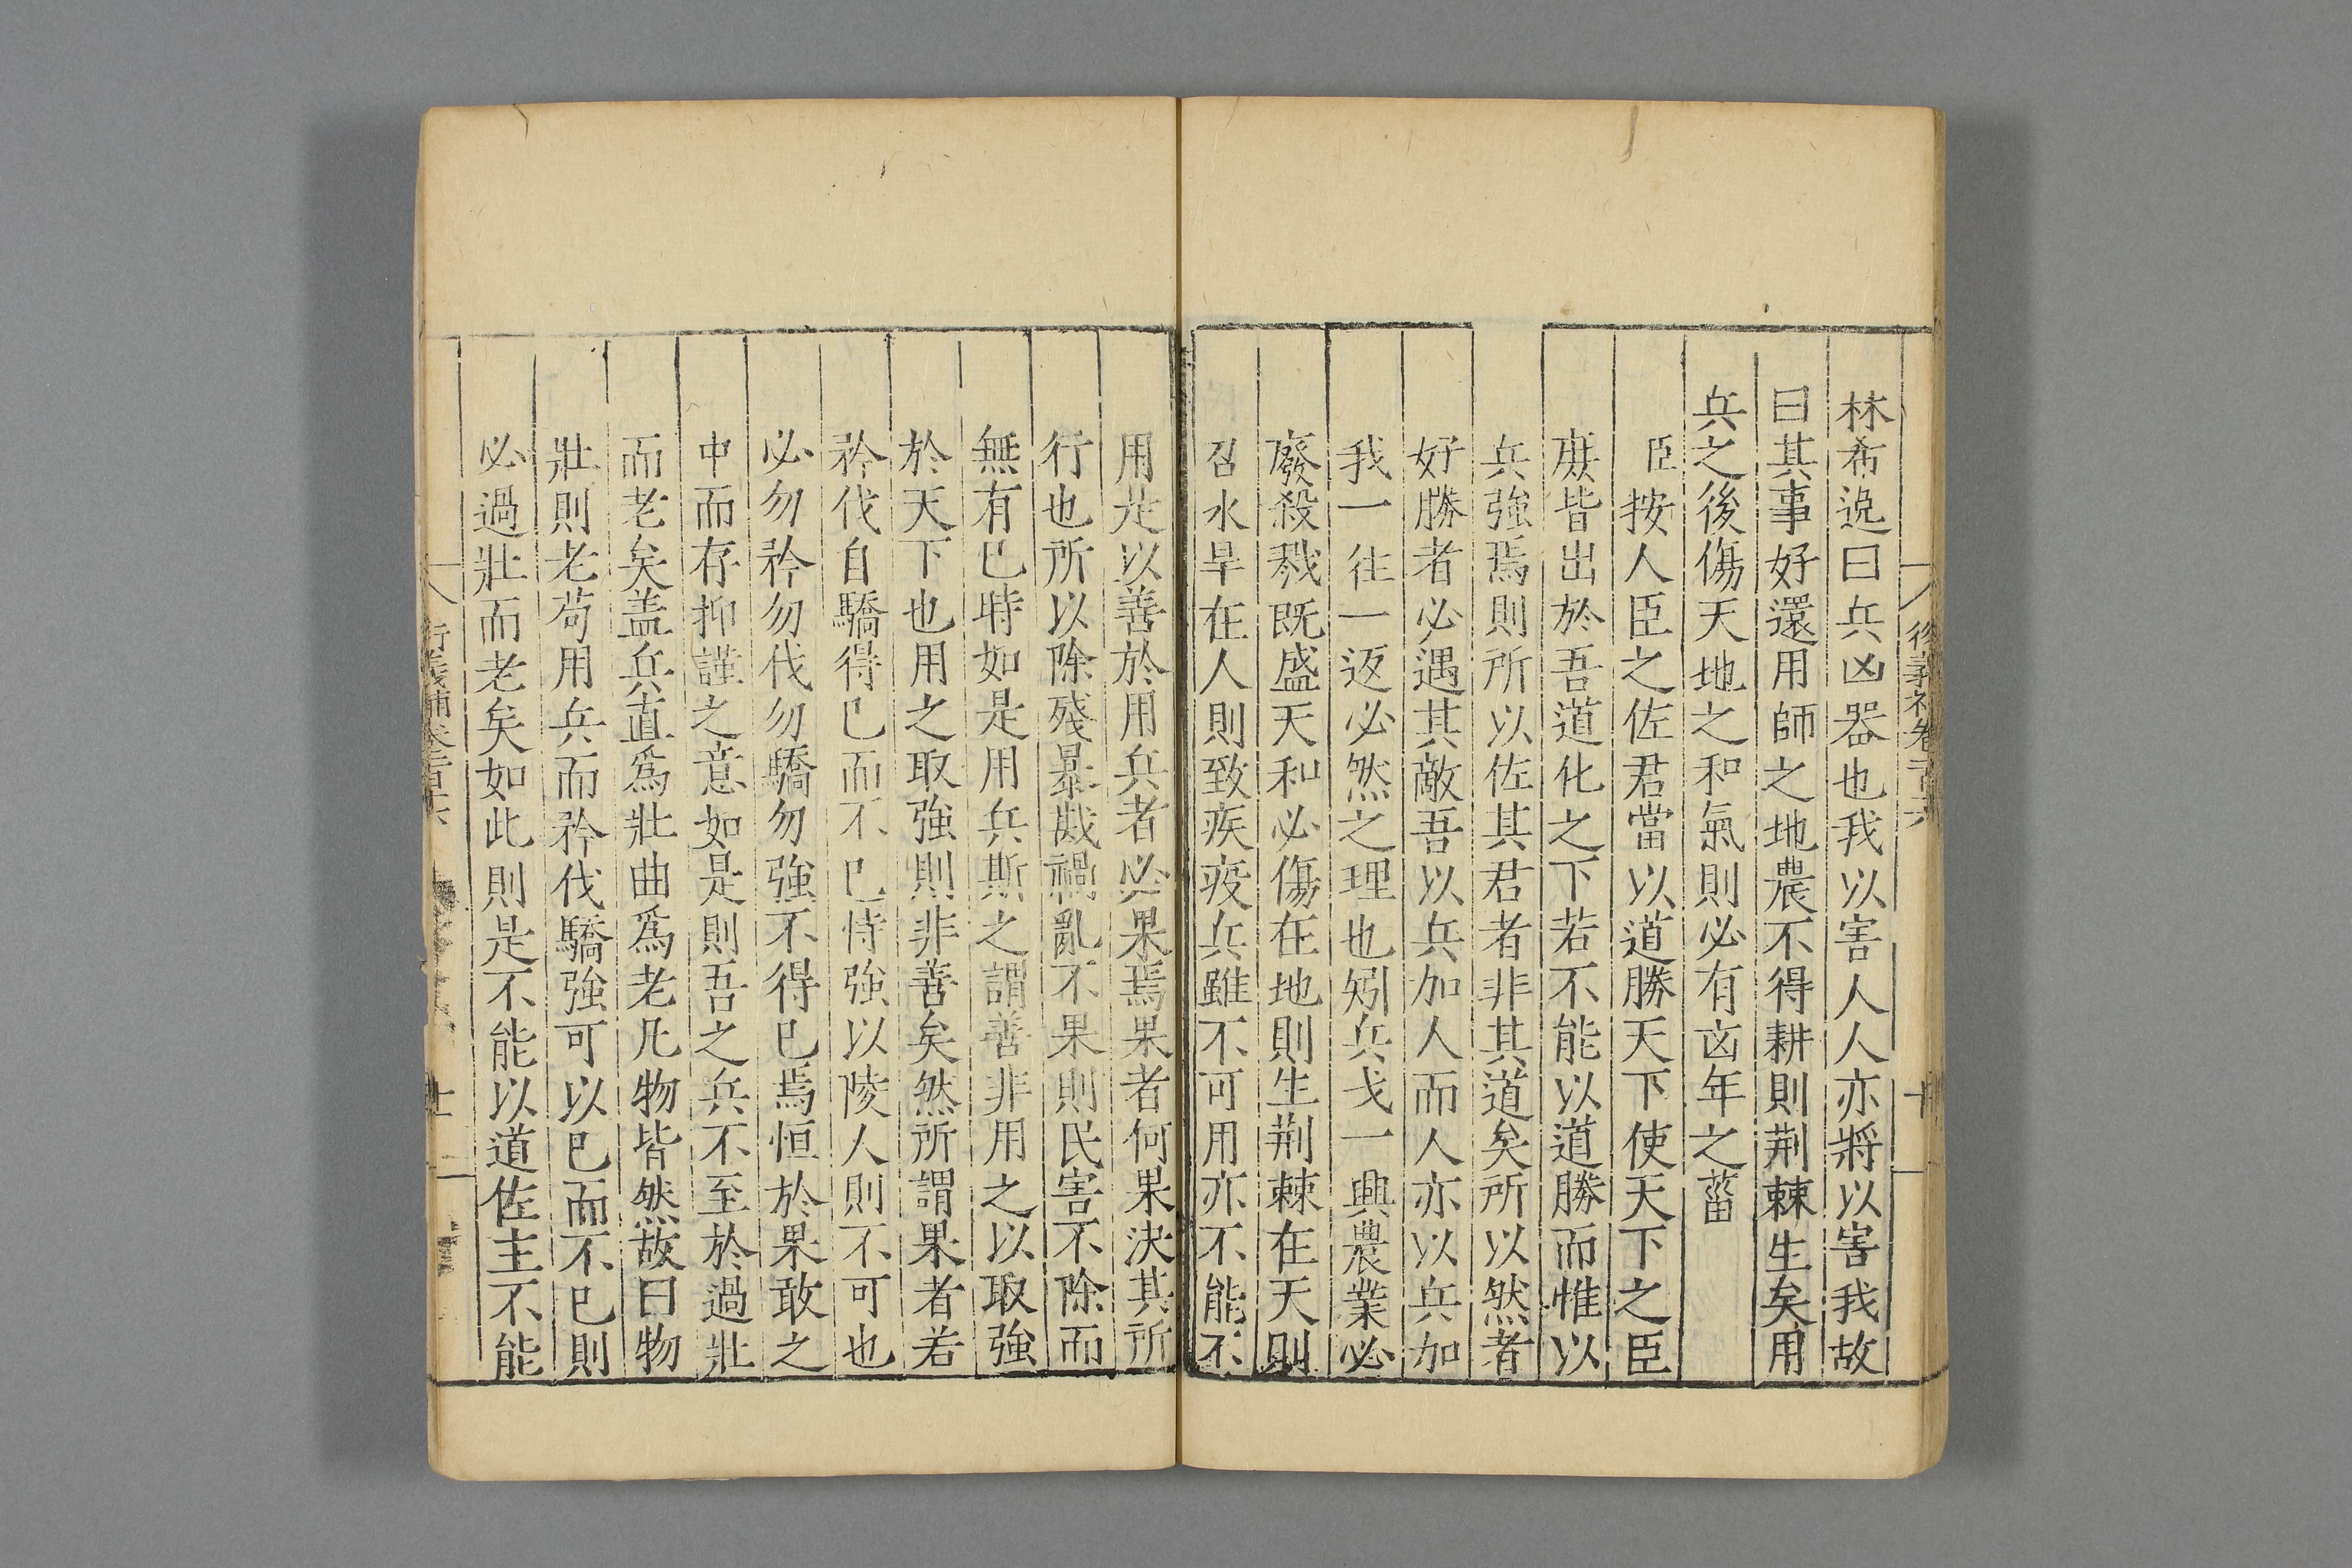 林希逸曰兵凶器也我以害人人亦將以害我故
曰其事好還用師之地農不得耕則荆棘生矣用
兵之後傷天地之和氣則必有凶年之菑
臣按人臣之佐君當以道勝天下使天下之臣
庻皆出於吾道化之下若不能以道勝而惟以
兵強焉則所以佐其君者非其道矣所以然者
好勝者必遇其敵吾以兵加人而人亦以兵加
我一往一返必然之理也矧兵戈一興農業必
廢殺戮既盛天和必傷在地則生荆棘在天則
召水旱在人則致疾疫兵雖不可用亦不能不
用是以善於用兵者必果焉果者何果決其所
行也所以除殘暴戡禍亂不果則民害不除而
無有已時如是用兵斯之謂善非用之以取強
於天下也用之取強則非善矣然所謂果者若
矜伐自驕得已而不已恃強以陵人則不可也
必勿矜勿伐勿驕勿強不得已焉恒於果敢之
中而存抑謹之意如是則吾之兵不至於過壯
而老矣盖兵直爲壯曲爲老凡物皆然故曰物
壯則老苟用兵而矜伐驕強可以已而不已則
必過壯而老矣如此則是不能以道佐主不能